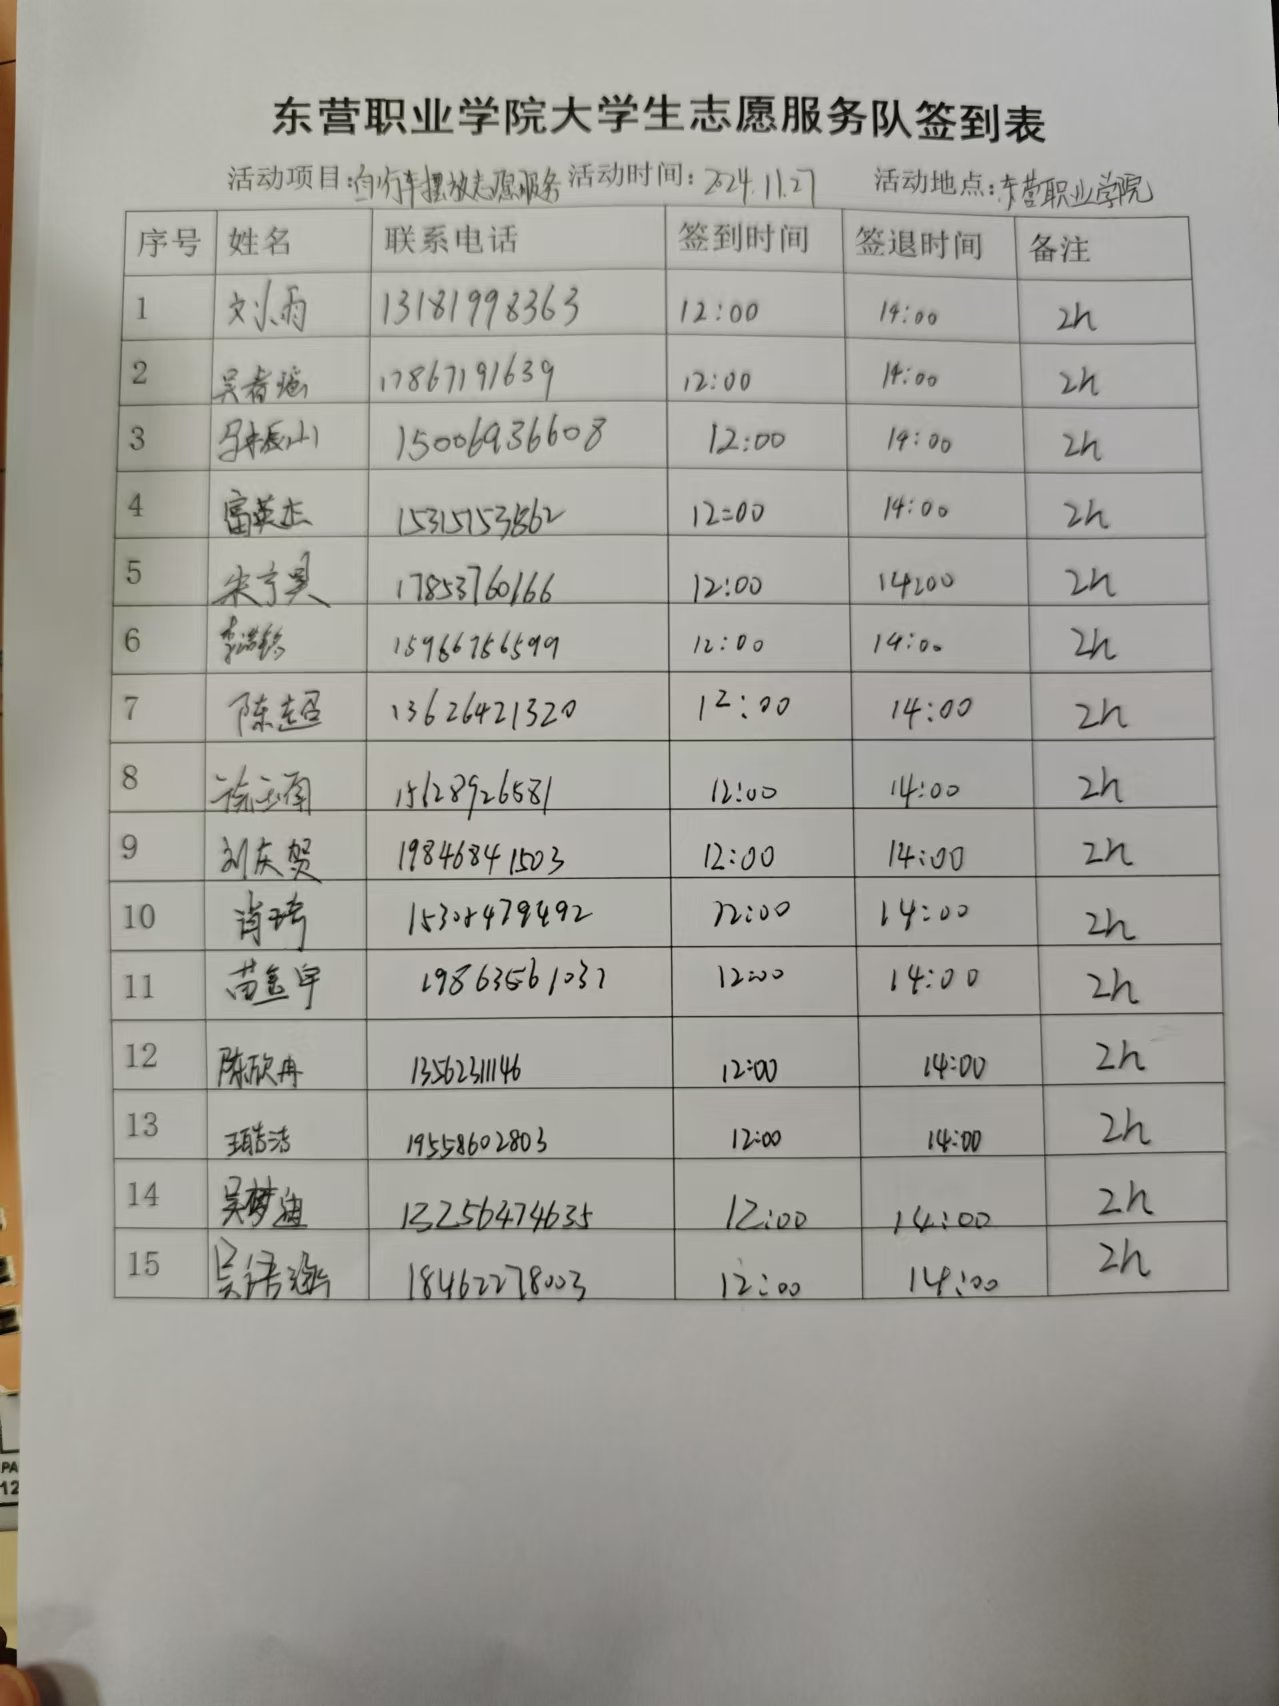 东营职业学院大学生志愿服务队签到表
活动项目:自行车摆放志愿服务 活动时间: 2024.11.27 活动地点:东营职业学院
序号 姓名 联系电话 签到时间 签退时间 备注
1 刘小雨 13181998363 12:00 14:00 2h
2 17867191639 12:00 14:00 2h
3 15006936608 12:00 14:00 2h
4 富英杰 12:00 14:00 2h
5 17853760166 12:00 14:00 2h
6 15966756599 12:00 14:00 2h
7 陈超 13626421320 12:00 14:00 2h
8 15628926581 12:00 14:00 2h
9 刘庆贺 19846841503 12:00 14:00 2h
10 肖琦 12:00 14:00 2h
11 苗金宇 19863561037 12:00 14:00 2h
12 陈欣冉 13562311146 12:00 14:00 2h
13 19558602803 12:00 14:00 2h
14 吴梦迪 13256474635 12:00 14:00 2h
15 吴语涵 18462278003 12:00 14:00 2h
PA
12